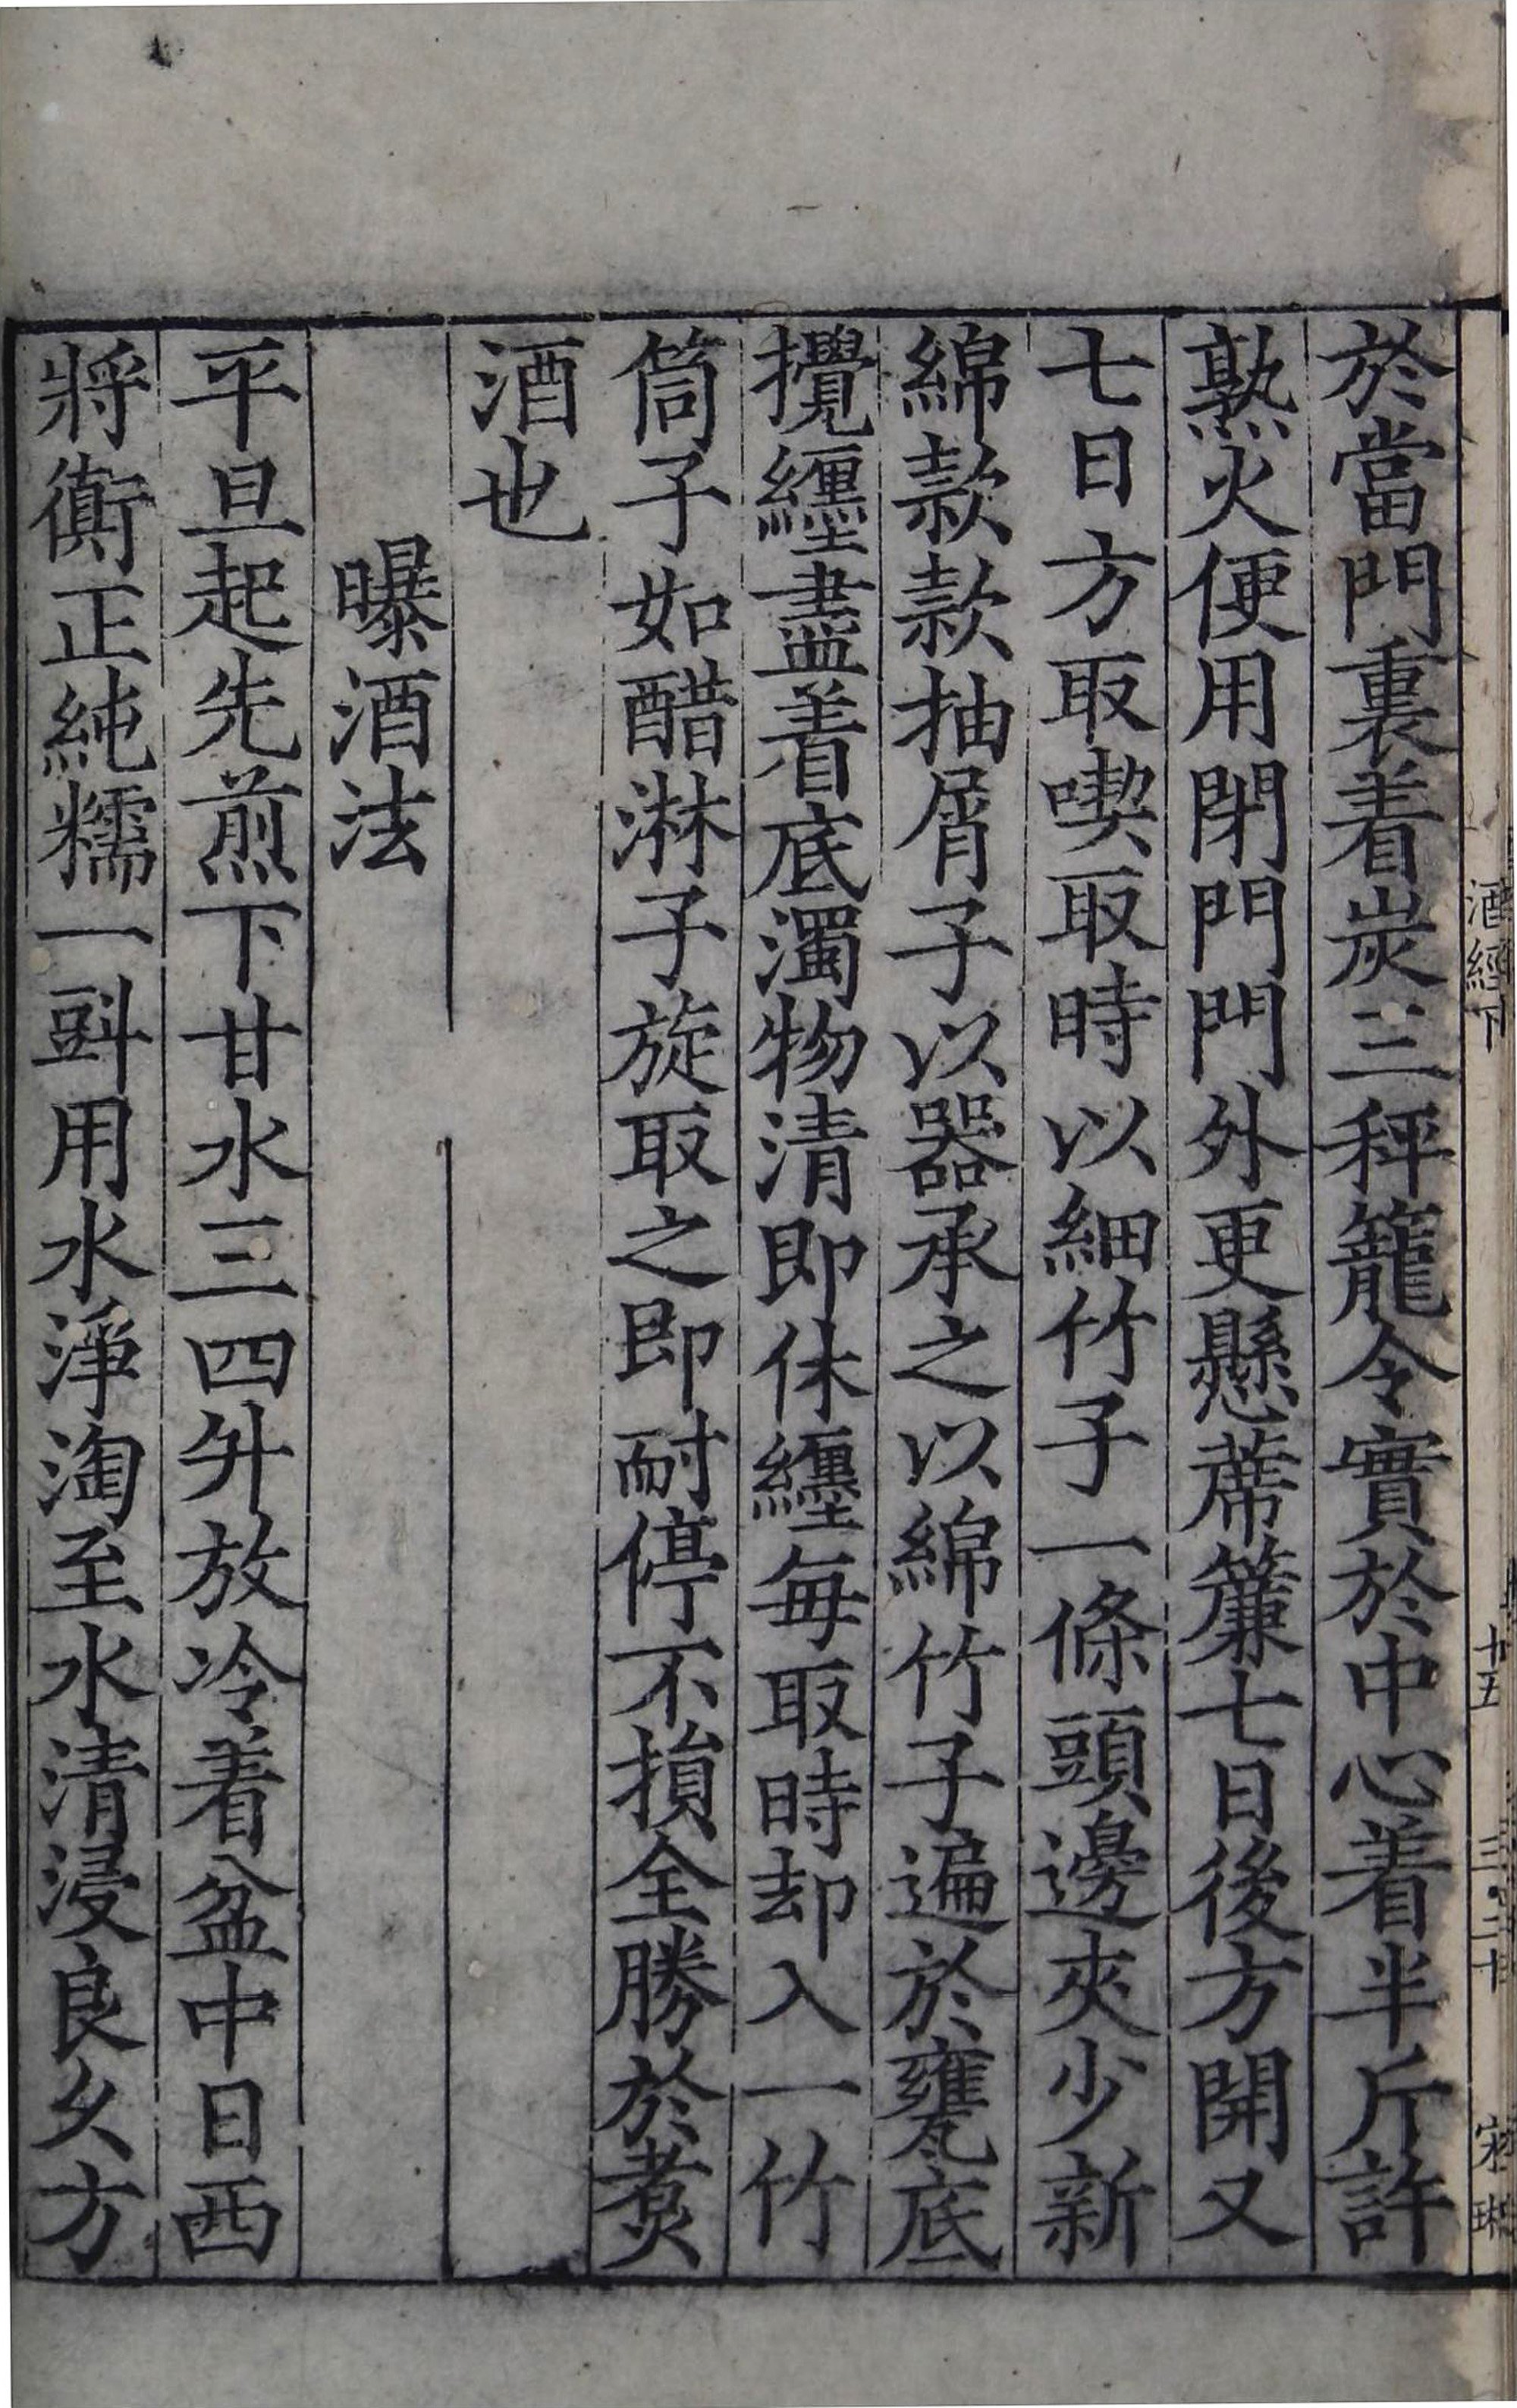 於當門裏着炭三秤籠令實於中心着半斤許
熟火便用閉門門外更懸蓆簾七日後方開又
七日方取喫取時以細竹子一條頭邊夾少新
綿款款抽屑子以器承之以綿竹子遍於甕底
攪纒盡着底濁物清即休纒每取時却入一竹
筒子如醋淋子旋取之即耐停不損全勝於煑
酒也
曝酒法
平旦起先煎下甘水三四升放冷着盆中日西
將衠正純糯一㪷用水淨淘至水清浸良乆方
酒經下
十五